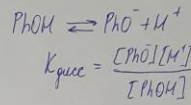 PhOH ⇌ PhO⁻ + H⁺
Kдисс = [PhO⁻][H⁺] / [PhOH]